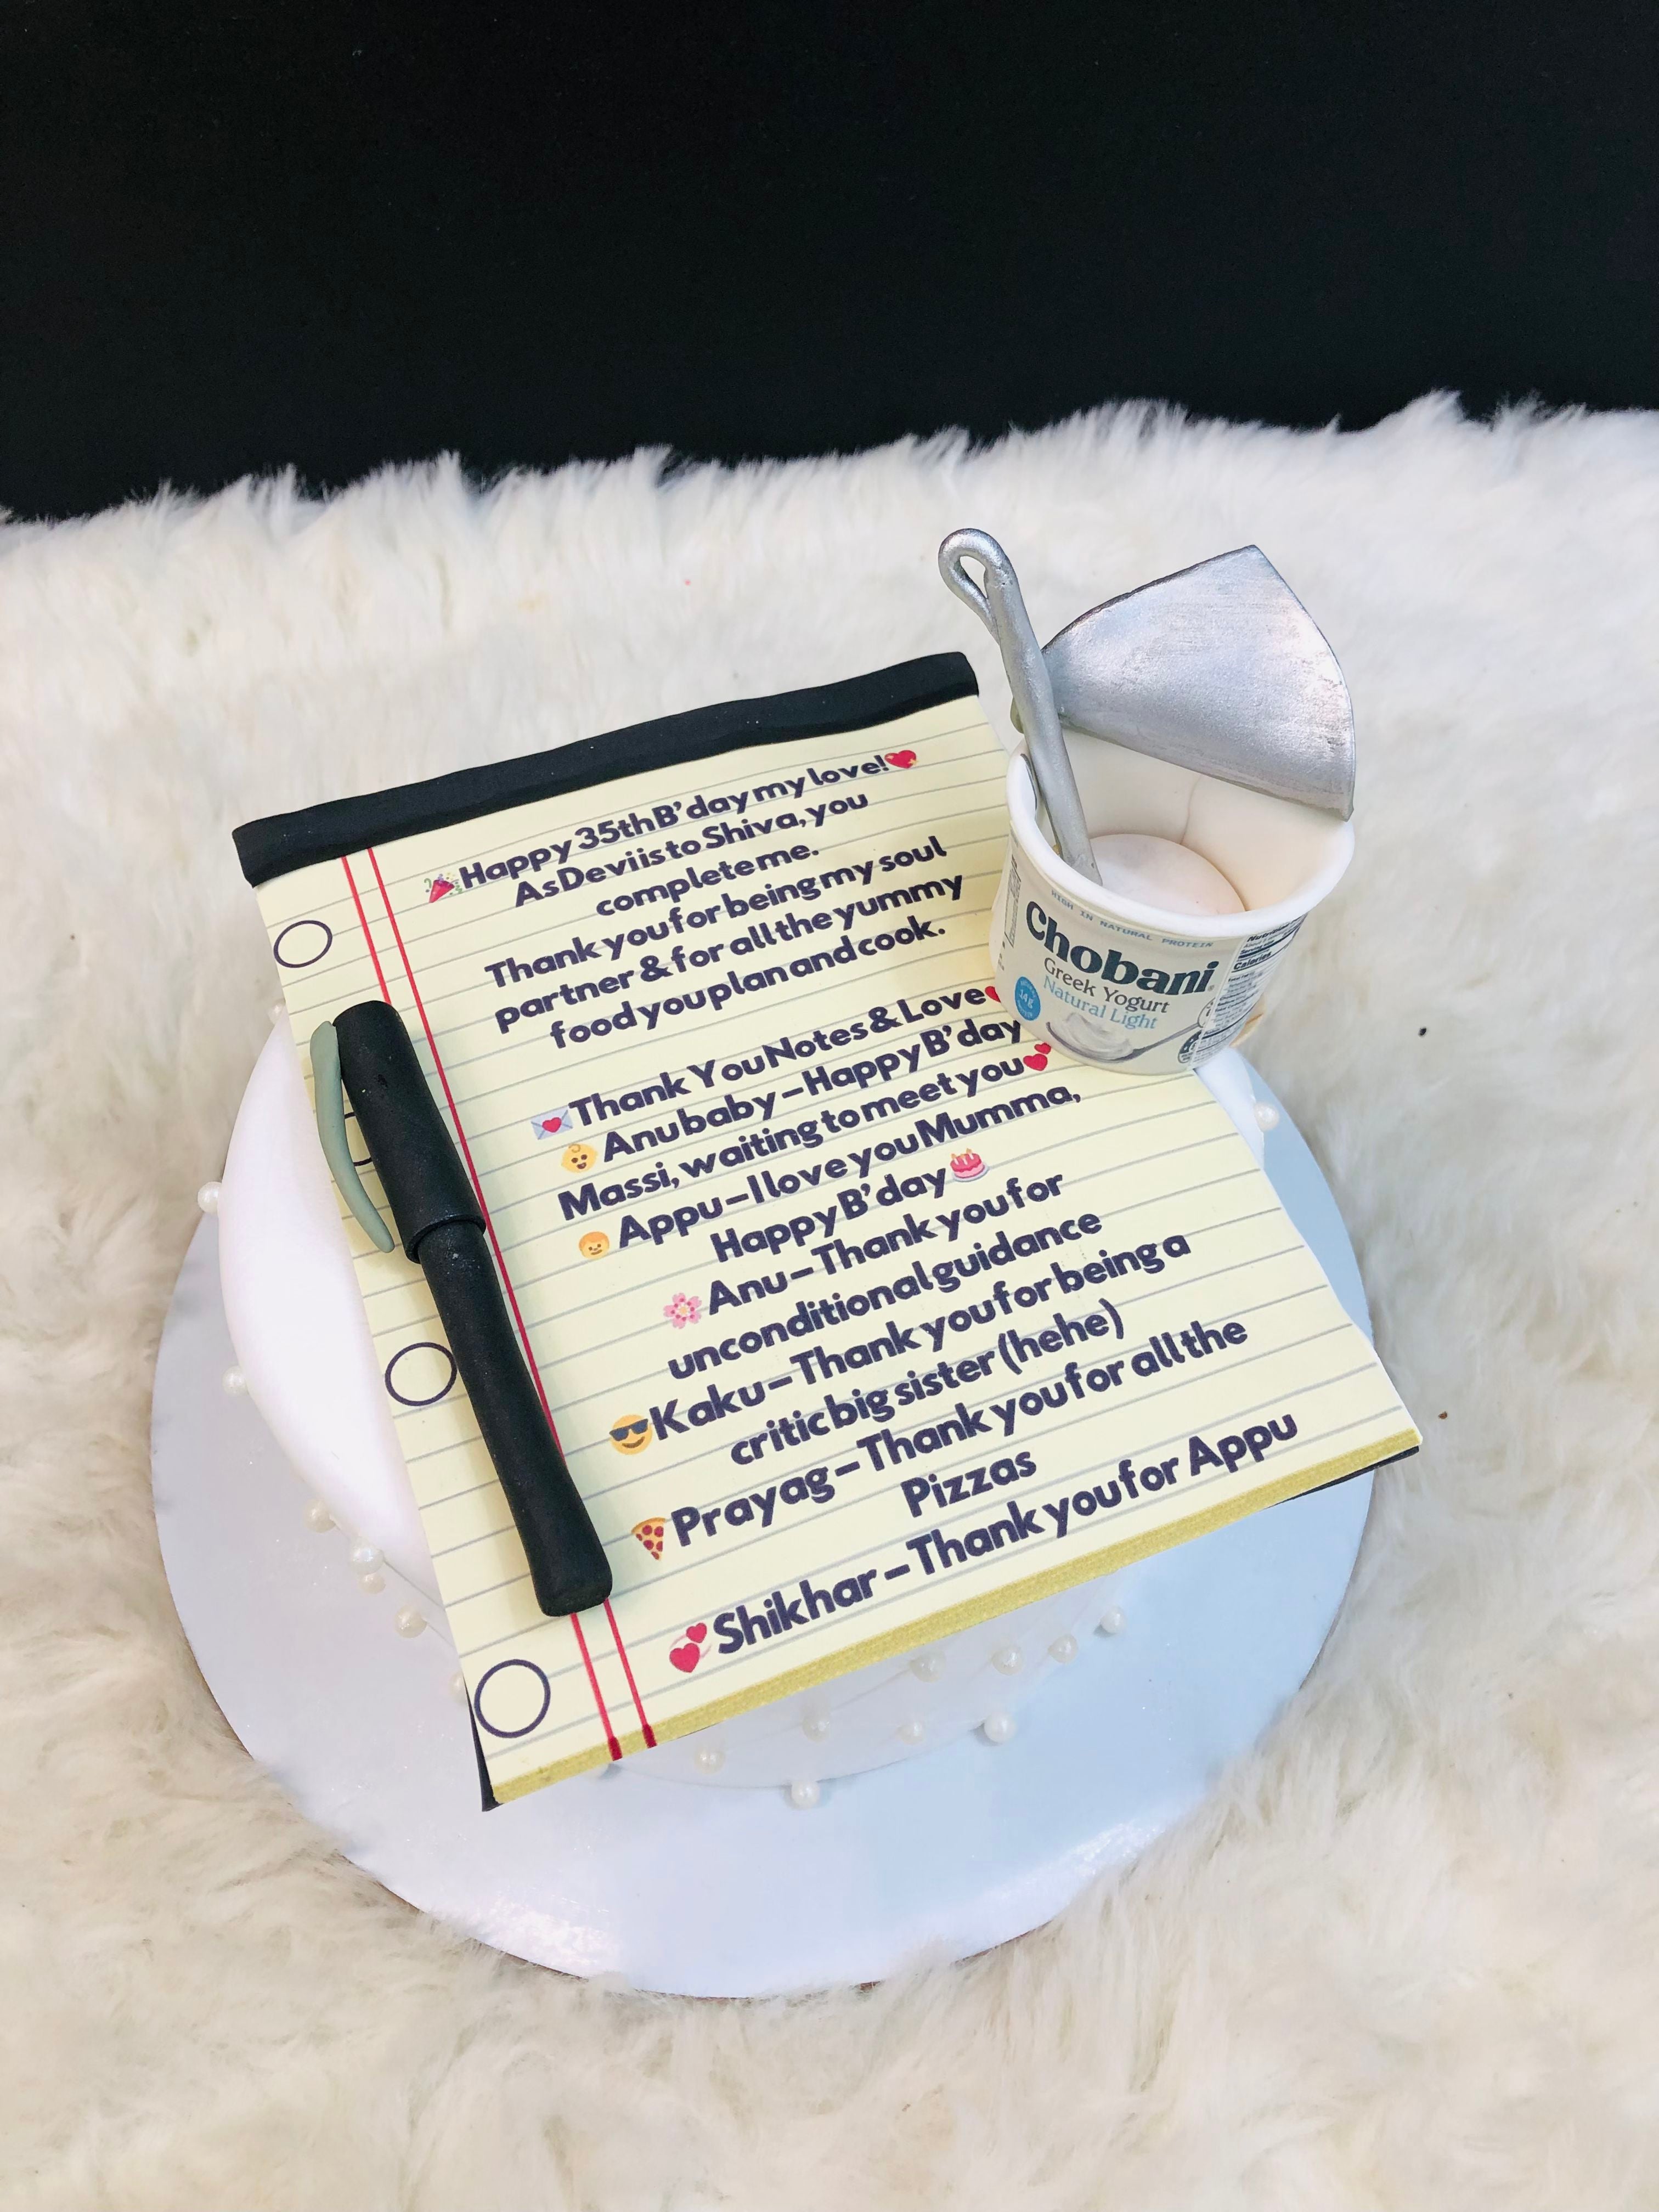 🎉Happy 35th B'day my love!💖
As Devi is to Shiva, you
complete me.
Thank you for being my soul
partner & for all the yummy
food you plan and cook.
💌Thank You Notes & Love
👶Anu baby – Happy B'day
Massi, waiting to meet you💕
👦Appu – I love you Mumma,
Happy B'day🎂
🌸Anu – Thank you for
unconditional guidance
😎Kaku – Thank you for being a
critic big sister (hehe)
🍕Prayag – Thank you for all the
Pizzas
💞Shikhar – Thank you for Appu
HIGH IN NATURAL PROTEIN
Chobani
Greek Yogurt
Natural Light
14g
Calories